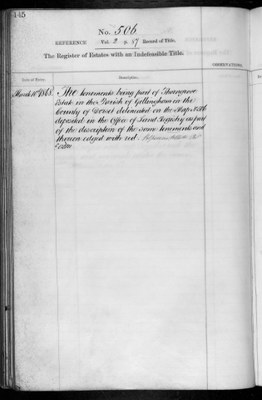 445
No. 506
REFERENCE Vol. 2 p. 57 Record of Title.
The Register of Estates with an Indefeasible Title.
Date of Entry.
Description.
OBSERVATIONS.
The tenements being part of Thorngrove
Estate in the Parish of Gillingham in the
County of Dorset delineated on the Map No. 506
deposited in the Office of Land Registry as part
of the description of the same tenements and
thereon edged with red.